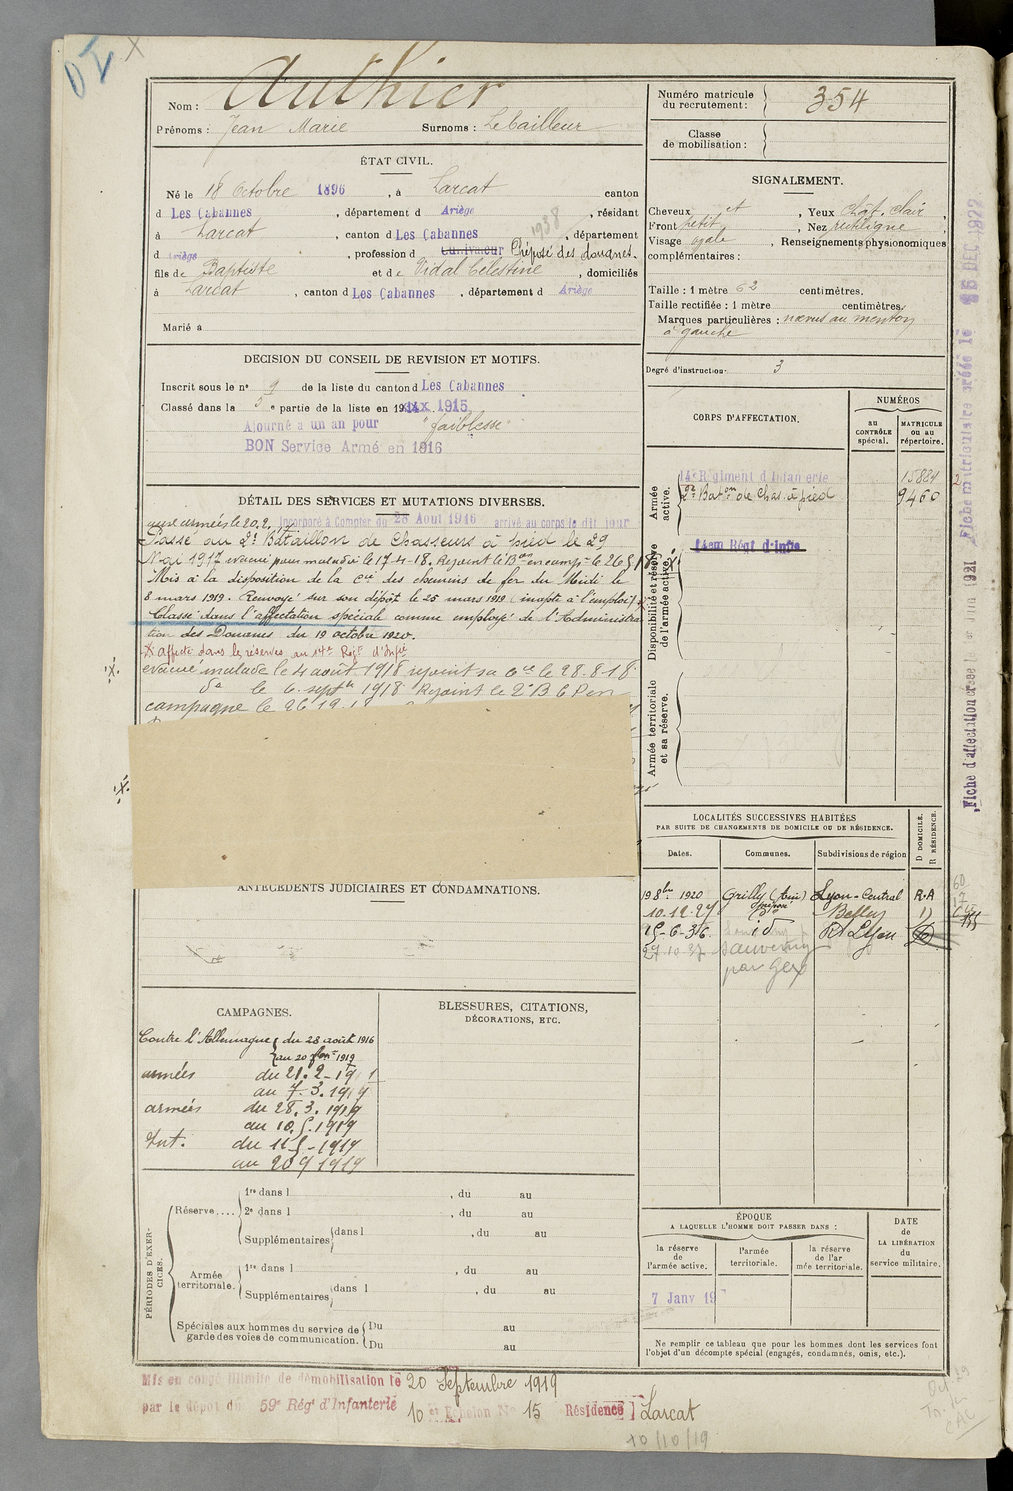 Nom : Authier
Prénoms : Jean Marie Surnoms : Lebailleur
Numéro matricule du recrutement : 354
Classe de mobilisation :
ÉTAT CIVIL.
Né le 18 Octobre 1896, à Larcat canton
d Les Cabannes, département d Ariège, résidant
à Larcat, canton d Les Cabannes, département
1938
d Ariège, profession d Cultivateur Préposé des douanes.
fils de Baptiste et de Vidal Célestine, domiciliés
à Larcat, canton d Les Cabannes, département d Ariège
Marié à
SIGNALEMENT.
Cheveux et, Yeux chât. clair,
Front petit, Nez rectiligne
Visage ovale, Renseignements physionomiques
complémentaires :
Taille : 1 mètre 62 centimètres.
Taille rectifiée : 1 mètre centimètres.
Marques particulières : nævus au menton
à gauche
Degré d'instruction : 3
DÉCISION DU CONSEIL DE REVISION ET MOTIFS.
Inscrit sous le n° 9 de la liste du canton d Les Cabannes
Classé dans la 5e partie de la liste en 1915
Ajourné a un an pour "faiblesse"
BON Service Armé en 1916
CORPS D'AFFECTATION.
NUMÉROS
au CONTRÔLE spécial.
MATRICULE ou au répertoire.
Armée active.
14e Régiment d Infanterie 15881
2e Baton de Chas. à pied 9460
Disponibilité et réserve de l'armée active.
14em Régt d'Infie
Armée territoriale et sa réserve.
DÉTAIL DES SERVICES ET MUTATIONS DIVERSES.
aux armées le 20.2. 17 Incorporé à Compter du 28 Aout 1916 arrivé au corps le dit jour
Passé au 2e Bataillon de Chasseurs à pied le 29
Mai 1917 evacué pour maladie le 17-4-18. Rejoint le Bon en campe le 26 5 18
Mis à la disposition de la Cie des chemins de fer du Midi le
8 mars 1919. Renvoyé sur son dépôt le 25 mars 1919 (inapte à l'emploi)
Classé dans l'affectation spéciale comme employé de l'Administra
tion des Douanes du 19 octobre 1920.
affecté dans les réserves au 14e Régt d'Infie
évacué malade le 4 août 1918 rejoint sa Cie le 28.8.18
do le 6. septbre 1918 Rejoint le 2e B C P en
campagne le 26
ANTÉCÉDENTS JUDICIAIRES ET CONDAMNATIONS.
LOCALITÉS SUCCESSIVES HABITÉES
PAR SUITE DE CHANGEMENTS DE DOMICILE OU DE RÉSIDENCE.
Dates. Communes. Subdivisions de région D DOMICILE. R RÉSIDENCE.
19 8bre 1920 Grilly (Ain) Lyon-Central R.A
10.12.27 Belley D
15-6-36. id Rt Lyon
27 10 37 Sauverny
par Gex
CAMPAGNES.
Contre l'Allemagne du 28 août 1916
au 20 fer 1917
armées du 21.2-1917
au 7.3.1919
armées du 28.3.1919
au 10.5.1919
Int. du 11 5-1919
au 20 9 1919
BLESSURES, CITATIONS,
DÉCORATIONS, ETC.
PÉRIODES D'EXERCICES.
Réserve.... 1re dans l, du au
2e dans l, du au
Supplémentaires dans l, du au
Armée territoriale. 1re dans l, du au
Supplémentaires dans l, du au
Spéciales aux hommes du service de garde des voies de communication. Du au
Du au
ÉPOQUE
A LAQUELLE L'HOMME DOIT PASSER DANS :
la réserve de l'armée active.
l'armée territoriale.
la réserve de l'armée territoriale.
DATE de LA LIBÉRATION du service militaire.
7 Janv 19
Ne remplir ce tableau que pour les hommes dont les services font
l'objet d'un décompte spécial (engagés, condamnés, omis, etc.).
Mis en congé illimité de démobilisation le 20 Septembre 1919
par le dépôt du 59e Régt d'Infanterie 10e Echelon No 15 Résidence Larcat
10/10/19
Fiche matriculaire créée le 15 DEC 1922
Fiche d'affectation créée le 1921